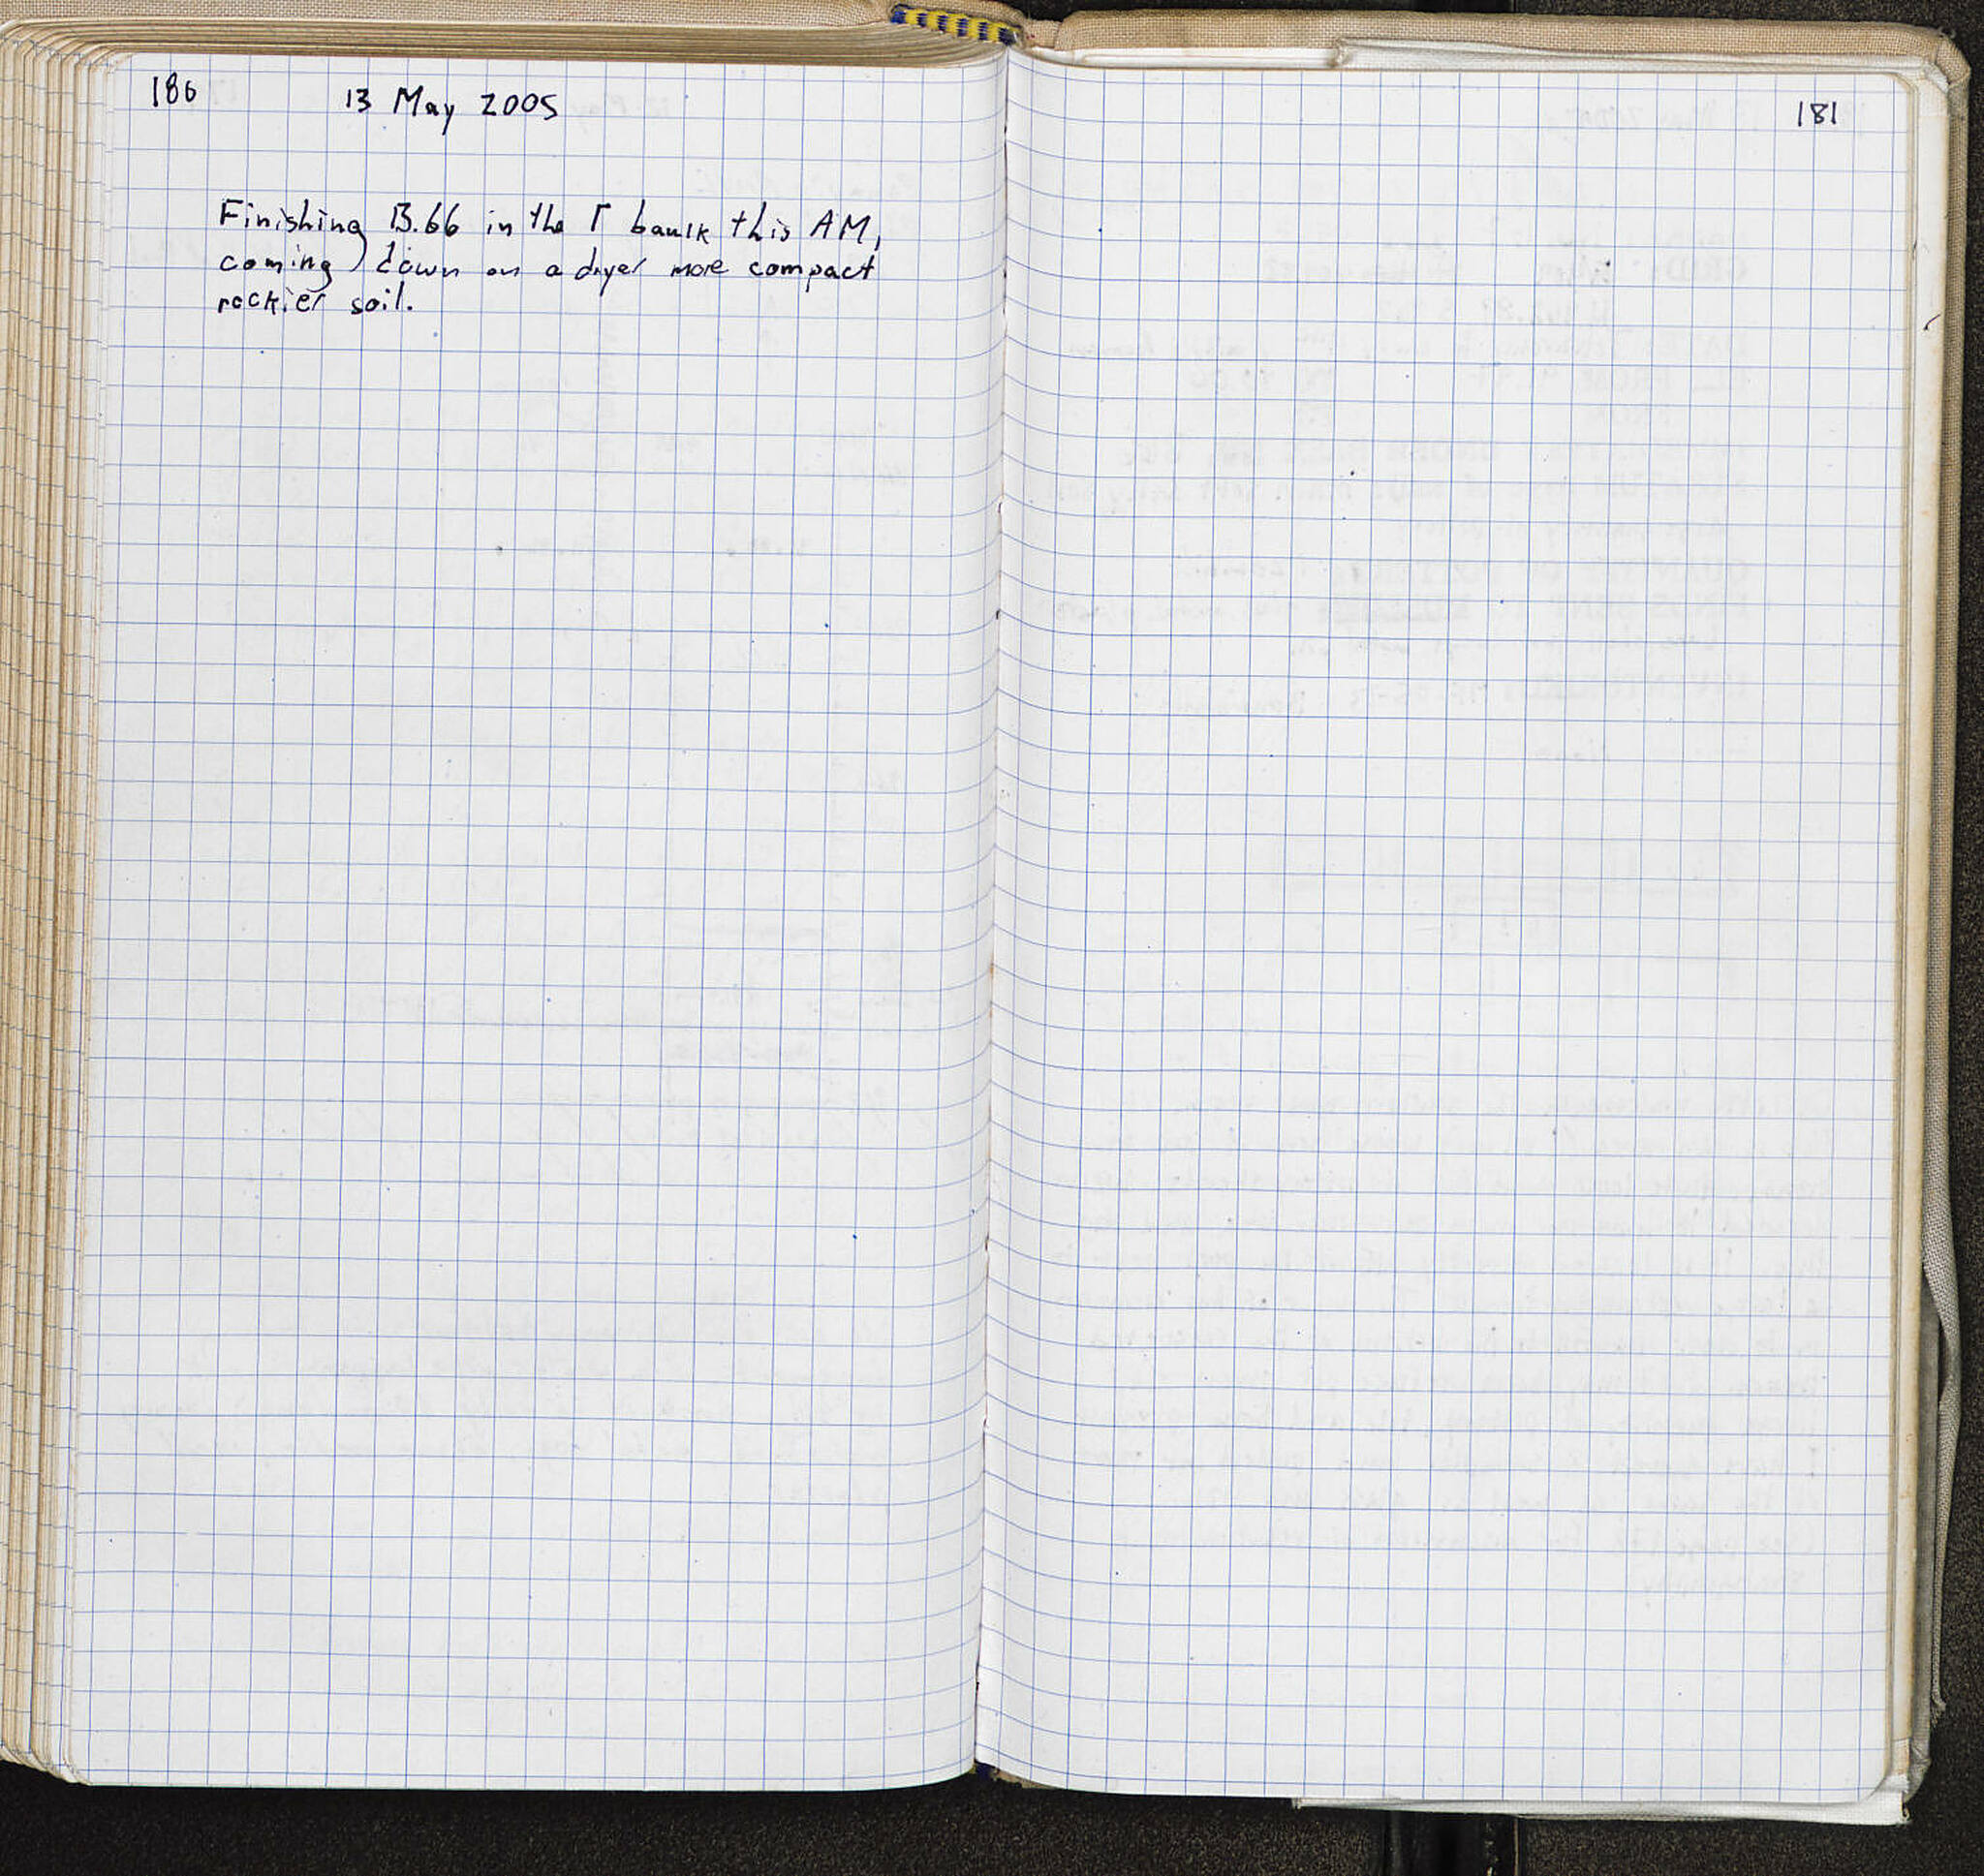 180
13 May 2005
Finishing B.66 in the Γ baulk this AM,
coming down on a dryer more compact
rockier soil.
181